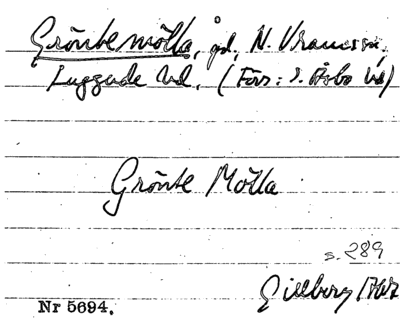 Gröntemölla, gd, N. Vram ssn,
Luggude hd. (Förr: S. Åsbo hd)
Grönte Mölla
s. 289
Gillberg
Nr 5694.